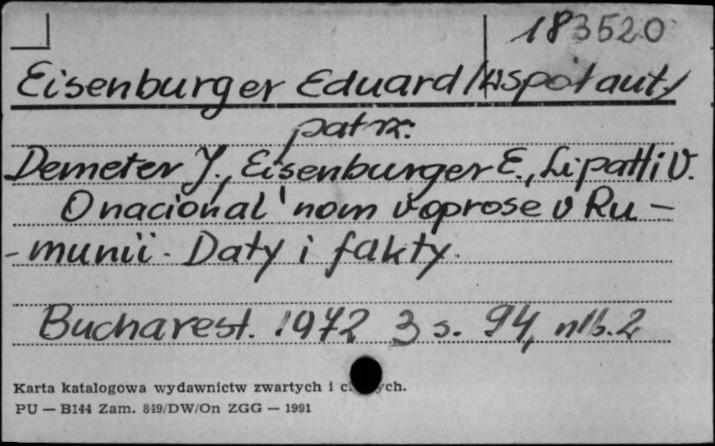 183520
Eisenburger Eduard /współaut./
patrz:
Demeter J., Eisenburger E., Lipatti V.
O nacional'nom voprose v Ru-
-munii. Daty i fakty.
Bucharest. 1972 3 s. 94, nlb. 2
Karta katalogowa wydawnictw zwartych i ych.
PU — B144 Zam. 849/DW/On ZGG — 1991